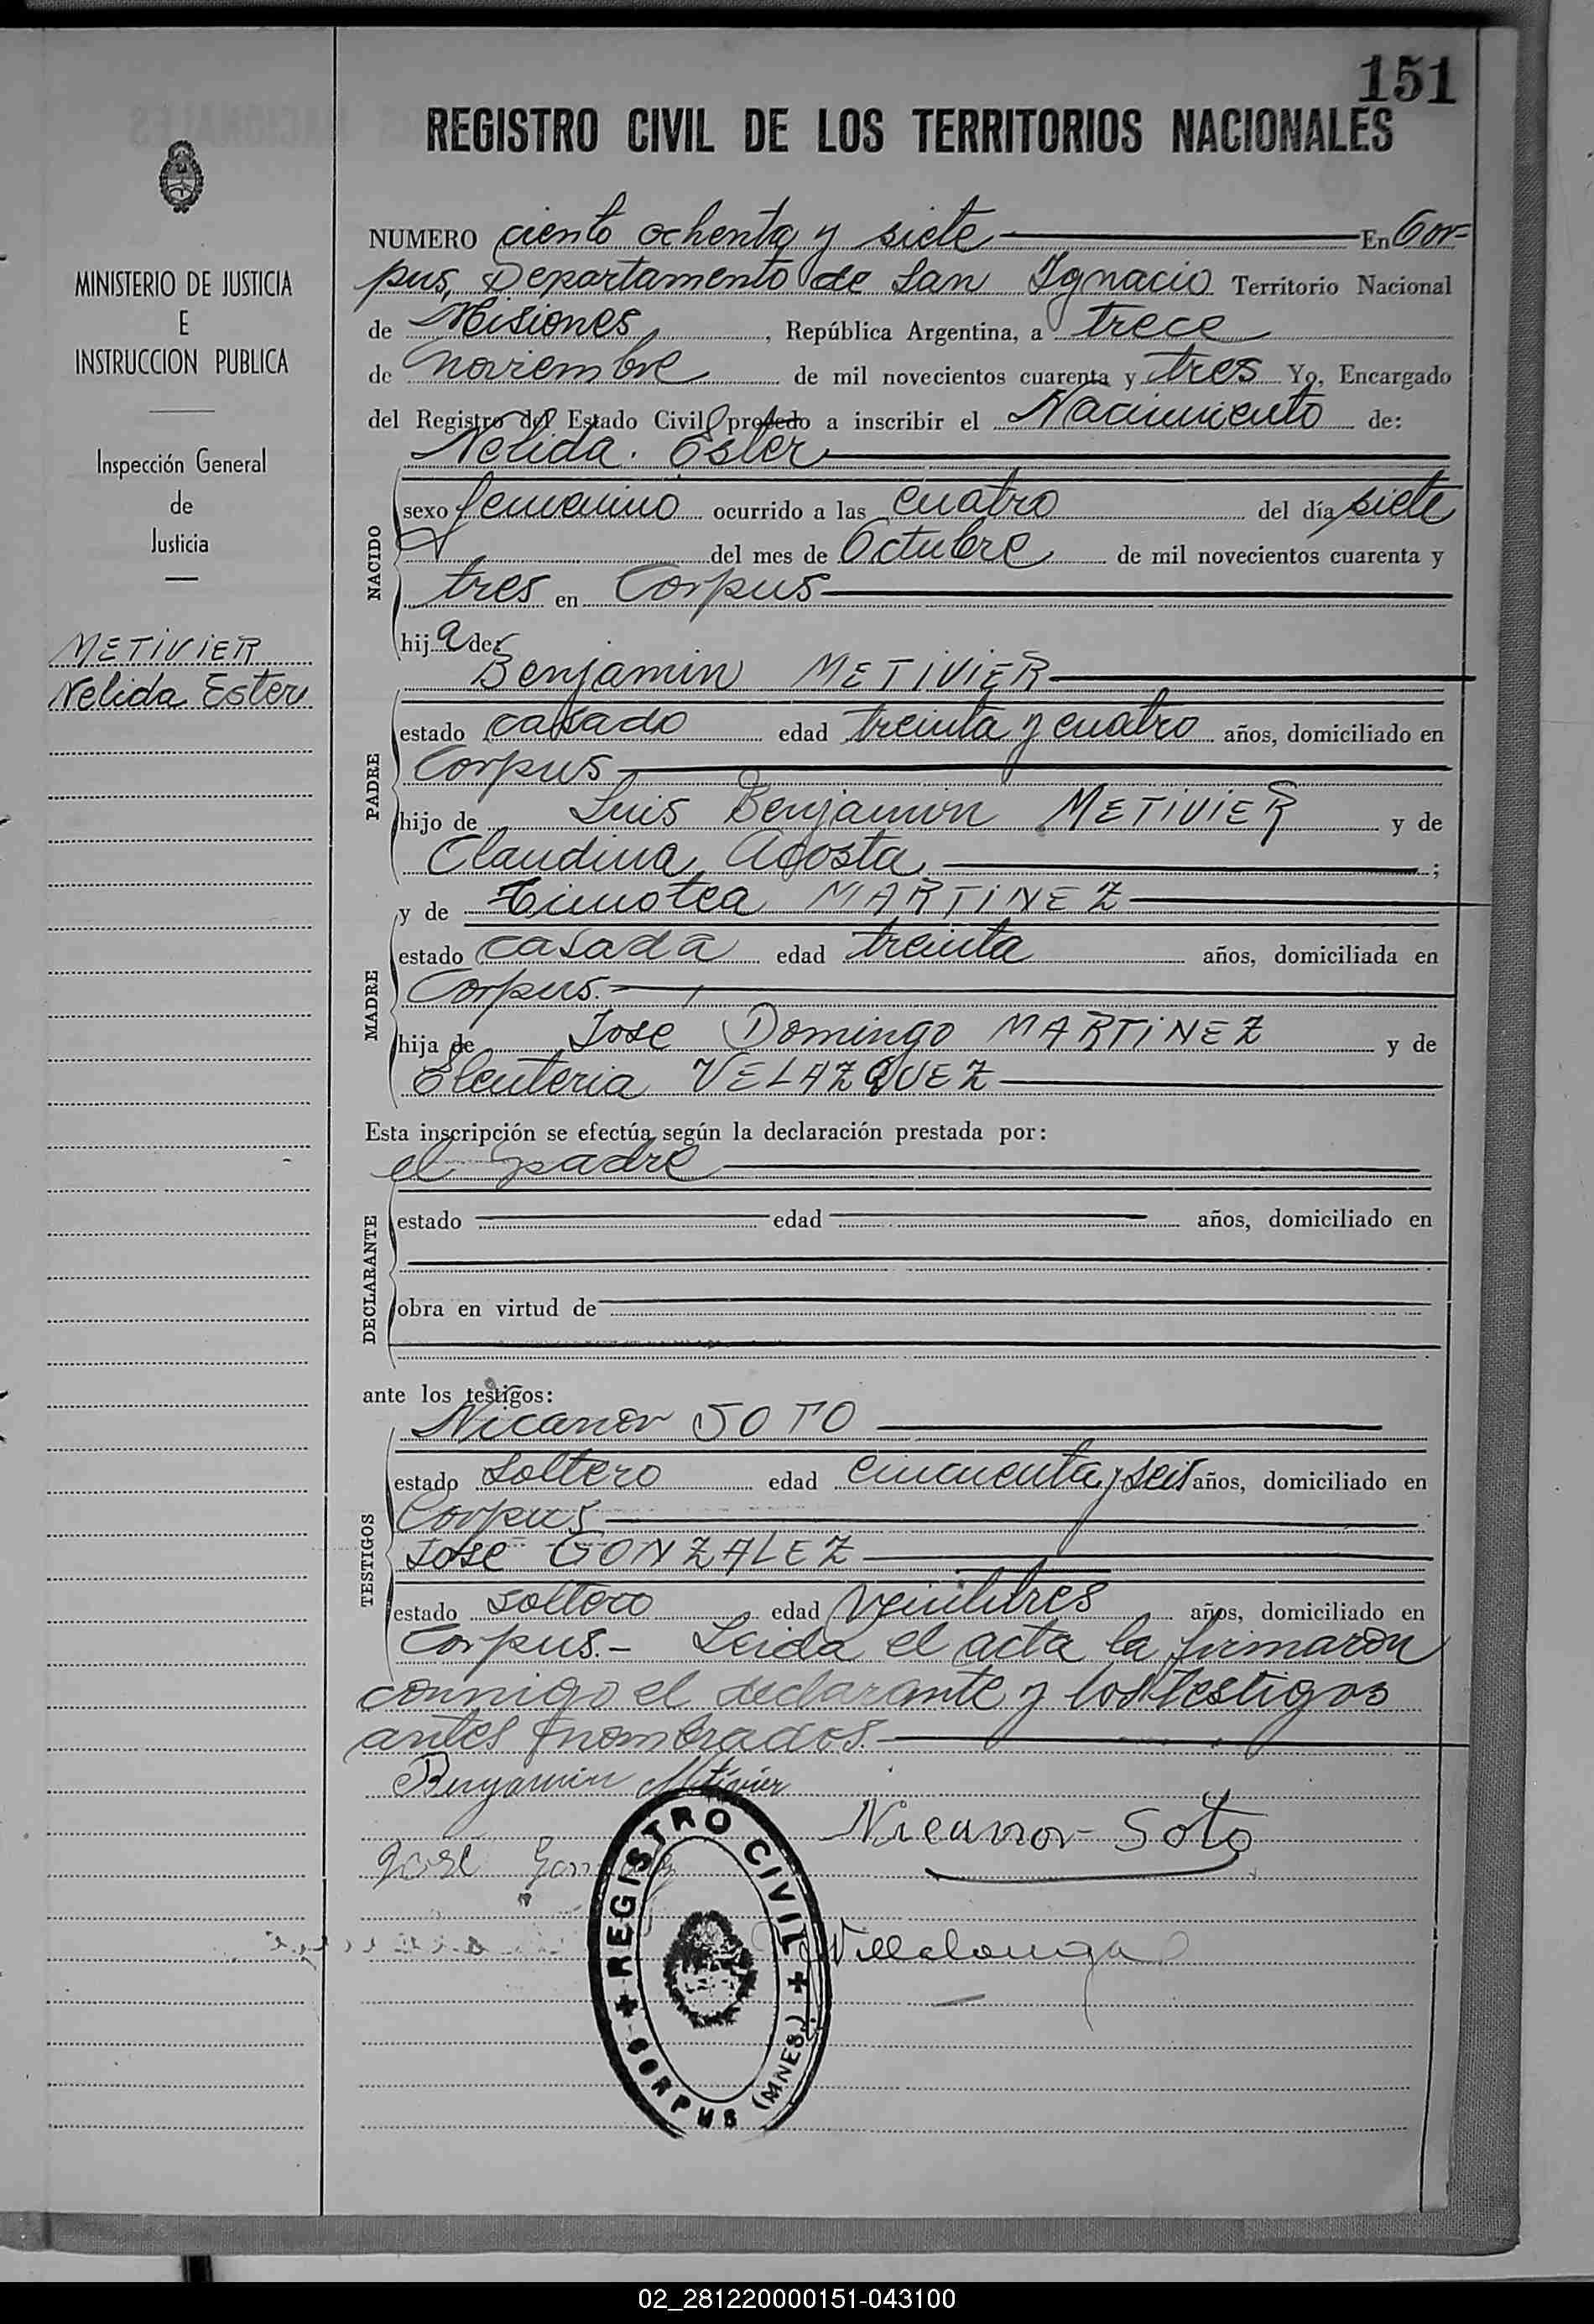 151
REGISTRO CIVIL DE LOS TERRITORIOS NACIONALES
MINISTERIO DE JUSTICIA
E
INSTRUCCION PUBLICA
Inspección General
de
Justicia
METIVIER
Nelida Ester
NUMERO ciento ochenta y siete En Cor=
pus, Departamento de San Ignacio Territorio Nacional
de Misiones, República Argentina, a trece
de noviembre de mil novecientos cuarenta y tres Yo, Encargado
del Registro del Estado Civil, procedo a inscribir el Nacimiento de:
Nelida. Ester
NACIDO
sexo femenino ocurrido a las cuatro del día siete
del mes de Octubre de mil novecientos cuarenta y
tres en Corpus
hija de:
Benjamin METIVIER
PADRE
estado casado edad treinta y cuatro años, domiciliado en
Corpus
hijo de Luis Benjamin METIVIER y de
Claudina Acosta ;
MADRE
y de Timotea MARTINEZ
estado casada edad treinta años, domiciliada en
Corpus.
hija de José Domingo MARTINEZ y de
Eleuteria VELAZQUEZ
Esta inscripción se efectúa según la declaración prestada por:
el padre
DECLARANTE
estado edad años, domiciliado en
obra en virtud de
ante los testigos:
TESTIGOS
Nicanor SOTO
estado soltero edad cincuenta y seis años, domiciliado en
Corpus
José GONZALEZ
estado soltero edad veintitres años, domiciliado en
Corpus.- Leida el acta la firmaron
conmigo el declarante y los testigos
antes nombrados.
Benjamin Metivier
Nicanor Soto
José Gonzalez
Villalonga
REGISTRO CIVIL
CORPUS (MNES.)
02_281220000151-043100